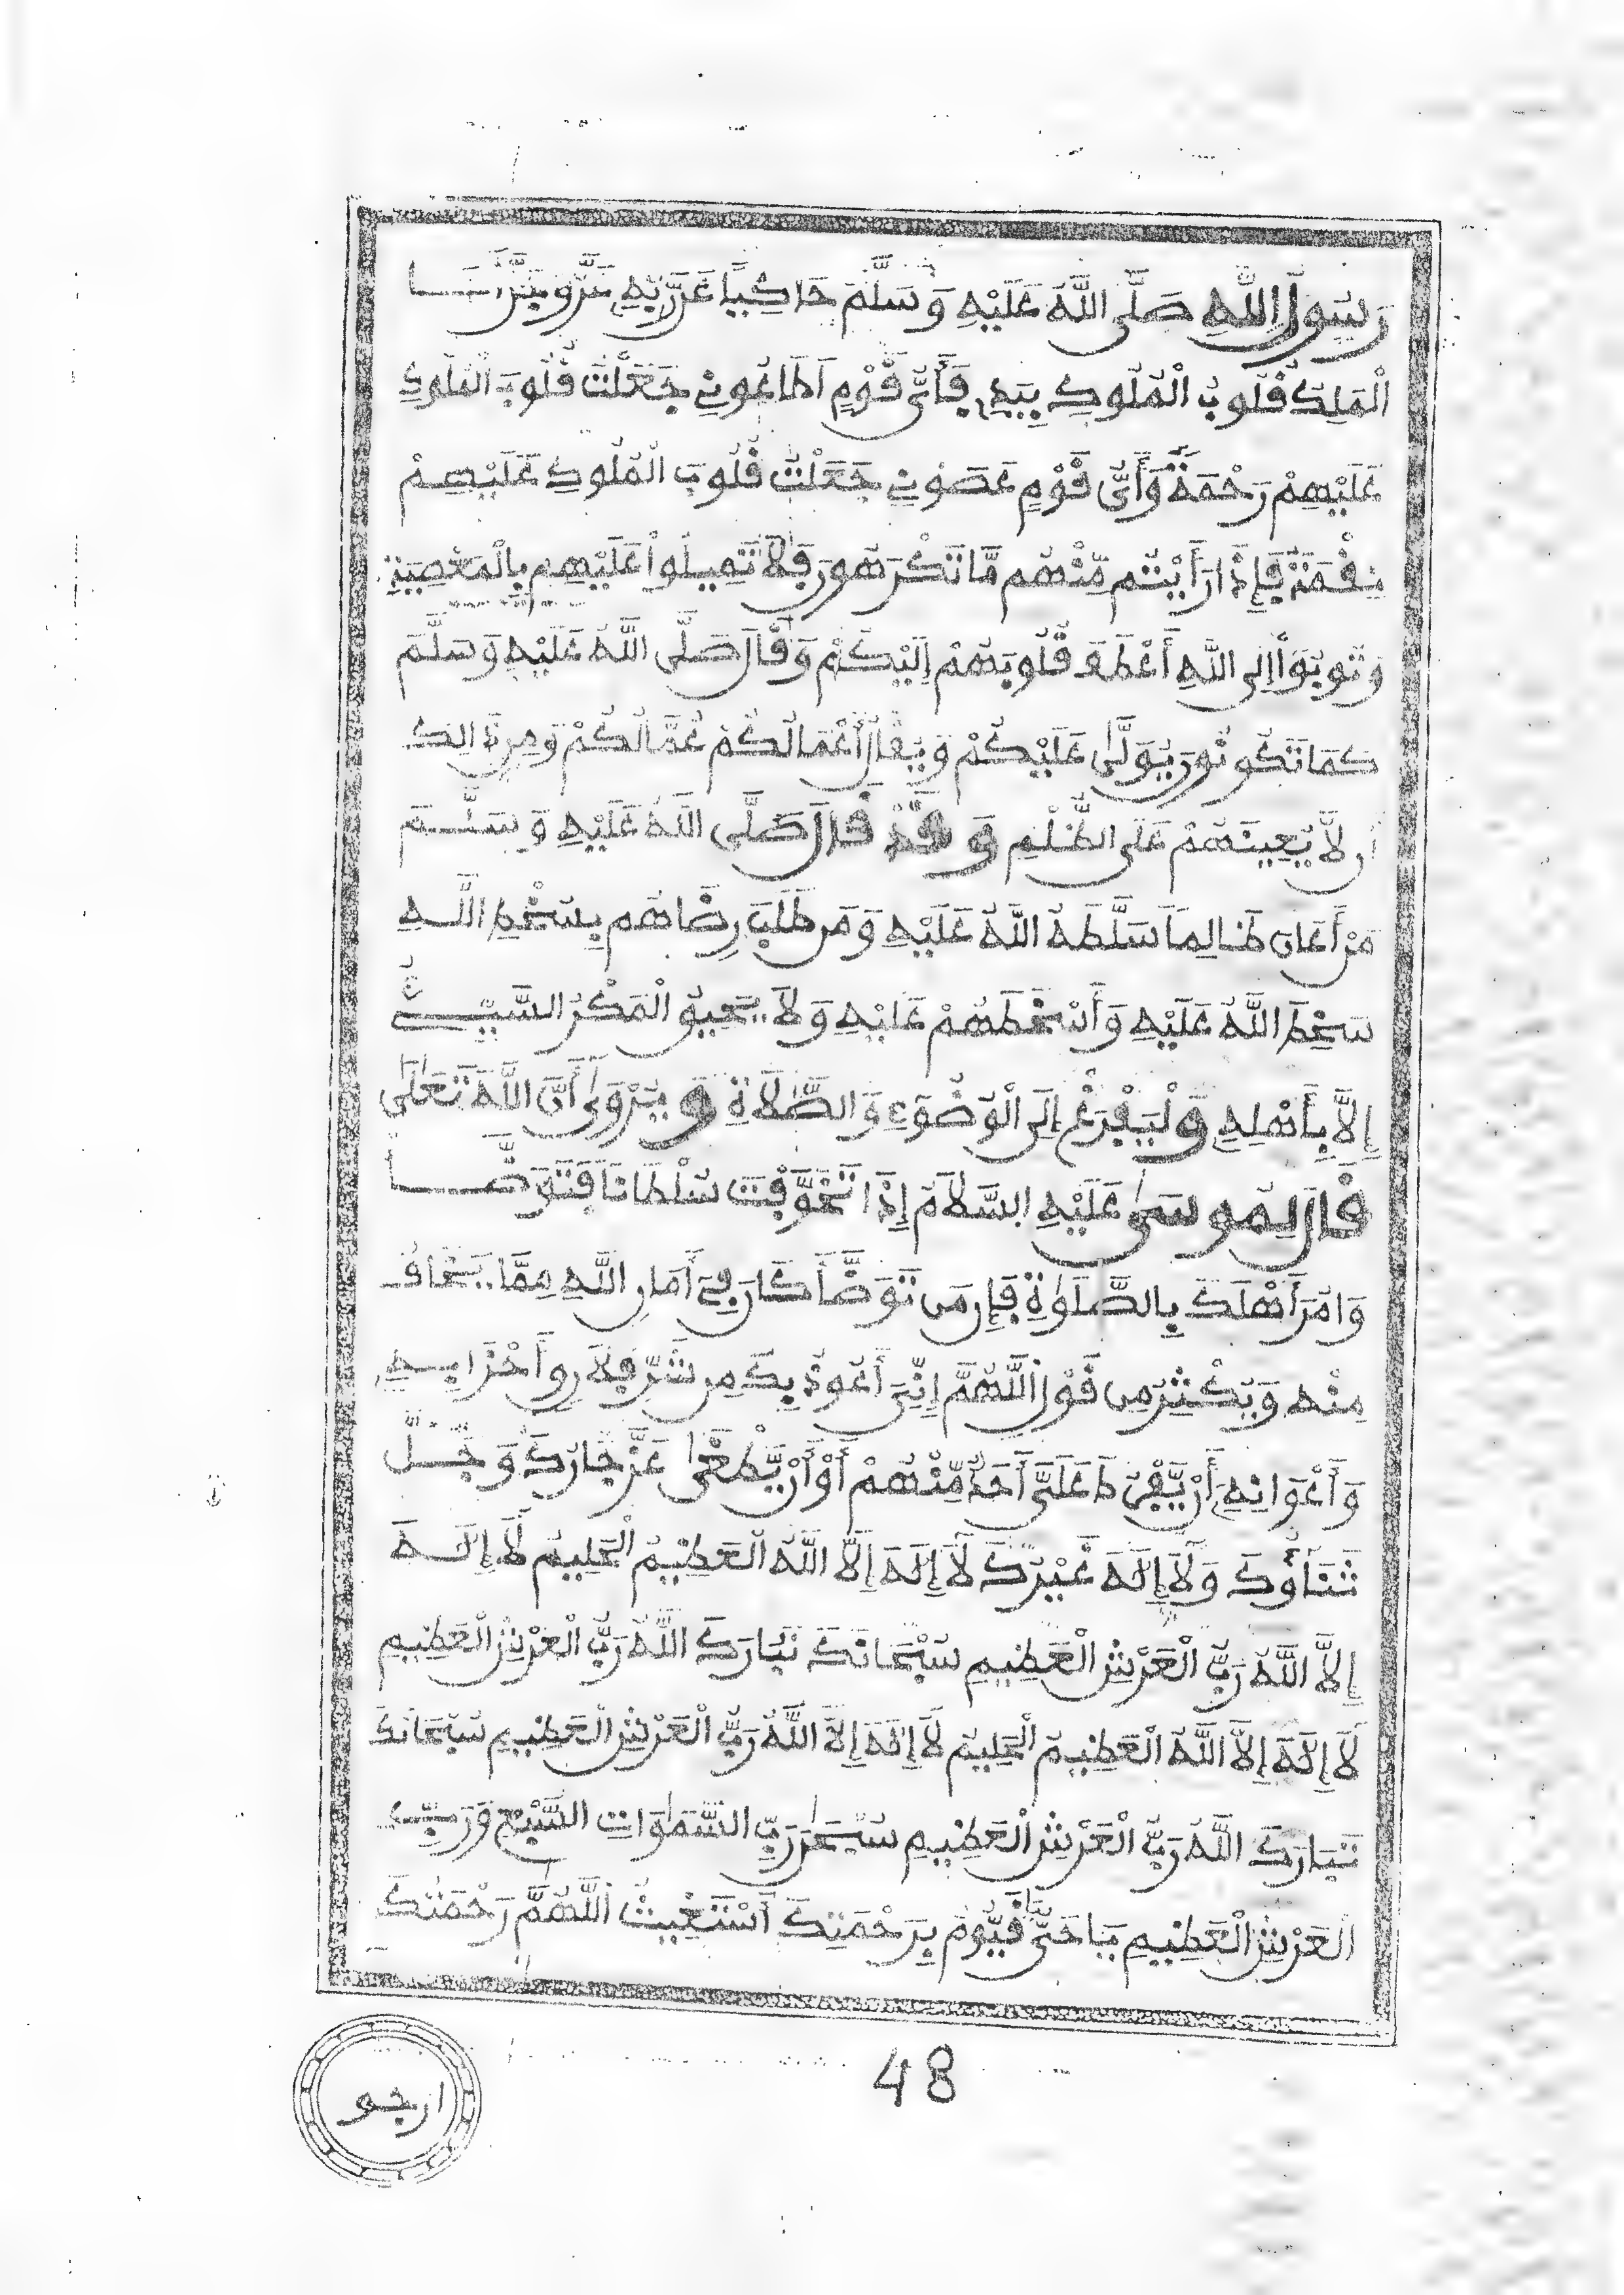 رَسُولِ اللَّهِ صَلَّى اللَّهُ عَلَيْهِ وَسَلَّمَ حَاكِيًا عَن رَّبِّهِ عَزَّ وَجَلَّ أَنَا
الْمَلِكُ قُلُوبُ الْمُلُوكِ بِيَدِي فَأَيُّ قَوْمٍ أَطَاعُونِي جَعَلْتُ قُلُوبَ الْمُلُوكِ
عَلَيْهِمْ رَحْمَةً وَأَيُّ قَوْمٍ عَصَوْنِي جَعَلْتُ قُلُوبَ الْمُلُوكِ عَلَيْهِمْ
نِقْمَةً فَإِذَا رَأَيْتُم مِّنْهُم مَّا تَكْرَهُونَ فَلَا تَمِيلُوا عَلَيْهِم بِالْمَعْصِيَةِ
وَتُوبُوا إِلَى اللَّهِ أَعْطِفْ قُلُوبَهُمْ إِلَيْكُمْ وَقَالَ صَلَّى اللَّهُ عَلَيْهِ وَسَلَّمَ
كَمَا تَكُونُونَ يُوَلَّى عَلَيْكُمْ وَيُقَالُ أَعْمَالُكُمْ عُمَّالُكُمْ وَمِن ذَالِكَ
أَن لَّا يُعِينَهُمْ عَلَى الظُّلْمِ وَقَدْ قَالَ صَلَّى اللَّهُ عَلَيْهِ وَسَلَّمَ
مَنْ أَعَانَ ظَالِمًا سَلَّطَهُ اللَّهُ عَلَيْهِ وَمَن طَلَبَ رِضَاهُم بِسُخْطِ اللَّهِ
سَخِطَ اللَّهُ عَلَيْهِ وَأَسْخَطَهُمْ عَلَيْهِ وَلَا يَحِيقُ الْمَكْرُ السَّيِّئُ
إِلَّا بِأَهْلِهِ وَلْيَفْزَعْ إِلَى الْوُضُوءِ وَالصَّلَاةِ وَيُرْوَى أَنَّ اللَّهَ تَعَلَى
قَالَ لِمُوسَى عَلَيْهِ السَّلَامُ إِذَا تَخَوَّفْتَ سُلْطَانًا فَتَوَضَّأْ
وَامُرَ أَهْلَكَ بِالصَّلَوٰةِ فَإِن مَن تَوَضَّأَ كَانَ فِي أَمَانِ اللَّهِ مِمَّا يَخَافُ
مِنْهُ وَيُكْثِرُ مِن قَوْلِ اللَّهُمَّ إِنِّي أَعُوذُ بِكَ مِن شَرِّ فِلَانٍ وَأَحْزَابِهِ
وَأَعْوَانِهِ أَنْ يَّفْرُطَ عَلَيَّ أَحَدٌ مِّنْهُمْ أَوْ أَنْ يَّطْغَى عَزَّ جَارُكَ وَجَلَّ
ثَنَاؤُكَ وَلَا إِلَهَ غَيْرُكَ لَا إِلَهَ إِلَّا اللَّهُ الْعَظِيمُ الْحَلِيمُ لَا إِلَهَ
إِلَّا اللَّهُ رَبُّ الْعَرْشِ الْعَظِيمِ سُبْحَانَكَ تَبَارَكَ اللَّهُ رَبُّ الْعَرْشِ الْعَظِيمِ
لَا إِلَهَ إِلَّا اللَّهُ الْعَظِيمُ الْحَلِيمُ لَا إِلَهَ إِلَّا اللَّهُ رَبُّ الْعَرْشِ الْعَظِيمِ سُبْحَانَكَ
تَبَارَكَ اللَّهُ رَبُّ الْعَرْشِ الْعَظِيمِ سُبْحَٰنَ رَبِّ السَّمَٰوَاتِ السَّبْعِ وَرَبِّ
الْعَرْشِ الْعَظِيمِ يَا حَيُّ يَا قَيُّومُ بِرَحْمَتِكَ أَسْتَغِيثُ اللَّهُمَّ رَحْمَتَكَ
48
ارجو